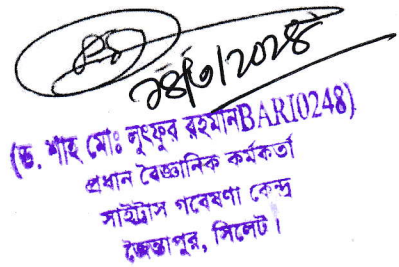 ২৪/৩/২০২৪
(ড. শাহ মোঃ লুৎফুর রহমানBARI0248)
প্রধান বৈজ্ঞানিক কর্মকর্তা
সাইট্রাস গবেষণা কেন্দ্র
জৈন্তাপুর, সিলেট।